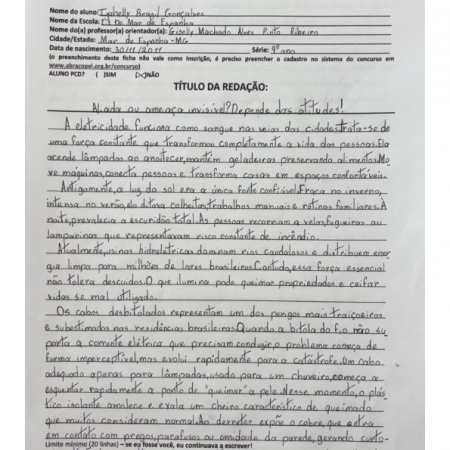 Nome do aluno: Isabelly Brasil Gonçalves
Nome da Escola: CE Mar de Espanha
Nome do(a) professor(a) orientador(a): Griselly Machado Alves Pinto Ribeiro
Cidade/Estado: Mar de Espanha-MG
Data de nascimento: 30/11/2011 Série: 9º ano
(o preenchimento desta ficha não vale como inscrição, é preciso preencher o cadastro no sistema do concurso em
www.abracopel.org.br/concurso)
ALUNO PCD? ( )SIM (X)NÃO
TÍTULO DA REDAÇÃO:
Aliada ou ameaça invisível? Depende das atitudes!
A eletricidade funciona como sangue nas veias das cidades.trata-se de
uma força constante que transformou completamente a vida das pessoas.Ela
acende lâmpadas ao anoitecer,mantém geladeiras preservando alimentos.Mo
ve máquinas,conecta pessoas e transforma casas em espaços confortáveis.
Antigamente,a luz do sol era a única fonte confiável.Fraca no inverno,
intensa no verão,ela ditava colheitas,trabalhos manuais e rotinas familiares.À
noite,prevalecia a escuridão total.As pessoas recorriam a velas,fogueiras ou
lamparinas que representavam risco constante de incêndio.
Atualmente,usinas hidrelétricas dominam rios caudalosos e distribuem ener
gia limpa para milhões de lares brasileiros.Contudo,essa força essencial
não tolera descuidos.O que ilumina pode queimar propriedades e ceifar
vidas se mal utilizado.
Os cabos desbitolados representam um dos perigos mais traiçoeiros
e subestimados nas residências brasileiras.Quando a bitola do fio não su
porta a corrente elétrica que precisam conduzir,o problema começa de
forma imperceptível,mas evolui rapidamente para a catástrofe.Um cabo
adequado apenas para lâmpadas,usado para um chuveiro,começa a
esquentar rapidamente a ponto de "queimar" a pele.Nesse momento,o plás
tico isolante amolece e exala um cheiro característico de queimado
que muitos consideram normal.Ao derreter expõe o cobre,que entra
em contato com pregos,parafusos ou umidade da parede,gerando curto-
Limite mínimo (20 linhas) – se eu fosse você, eu continuava a escrever!